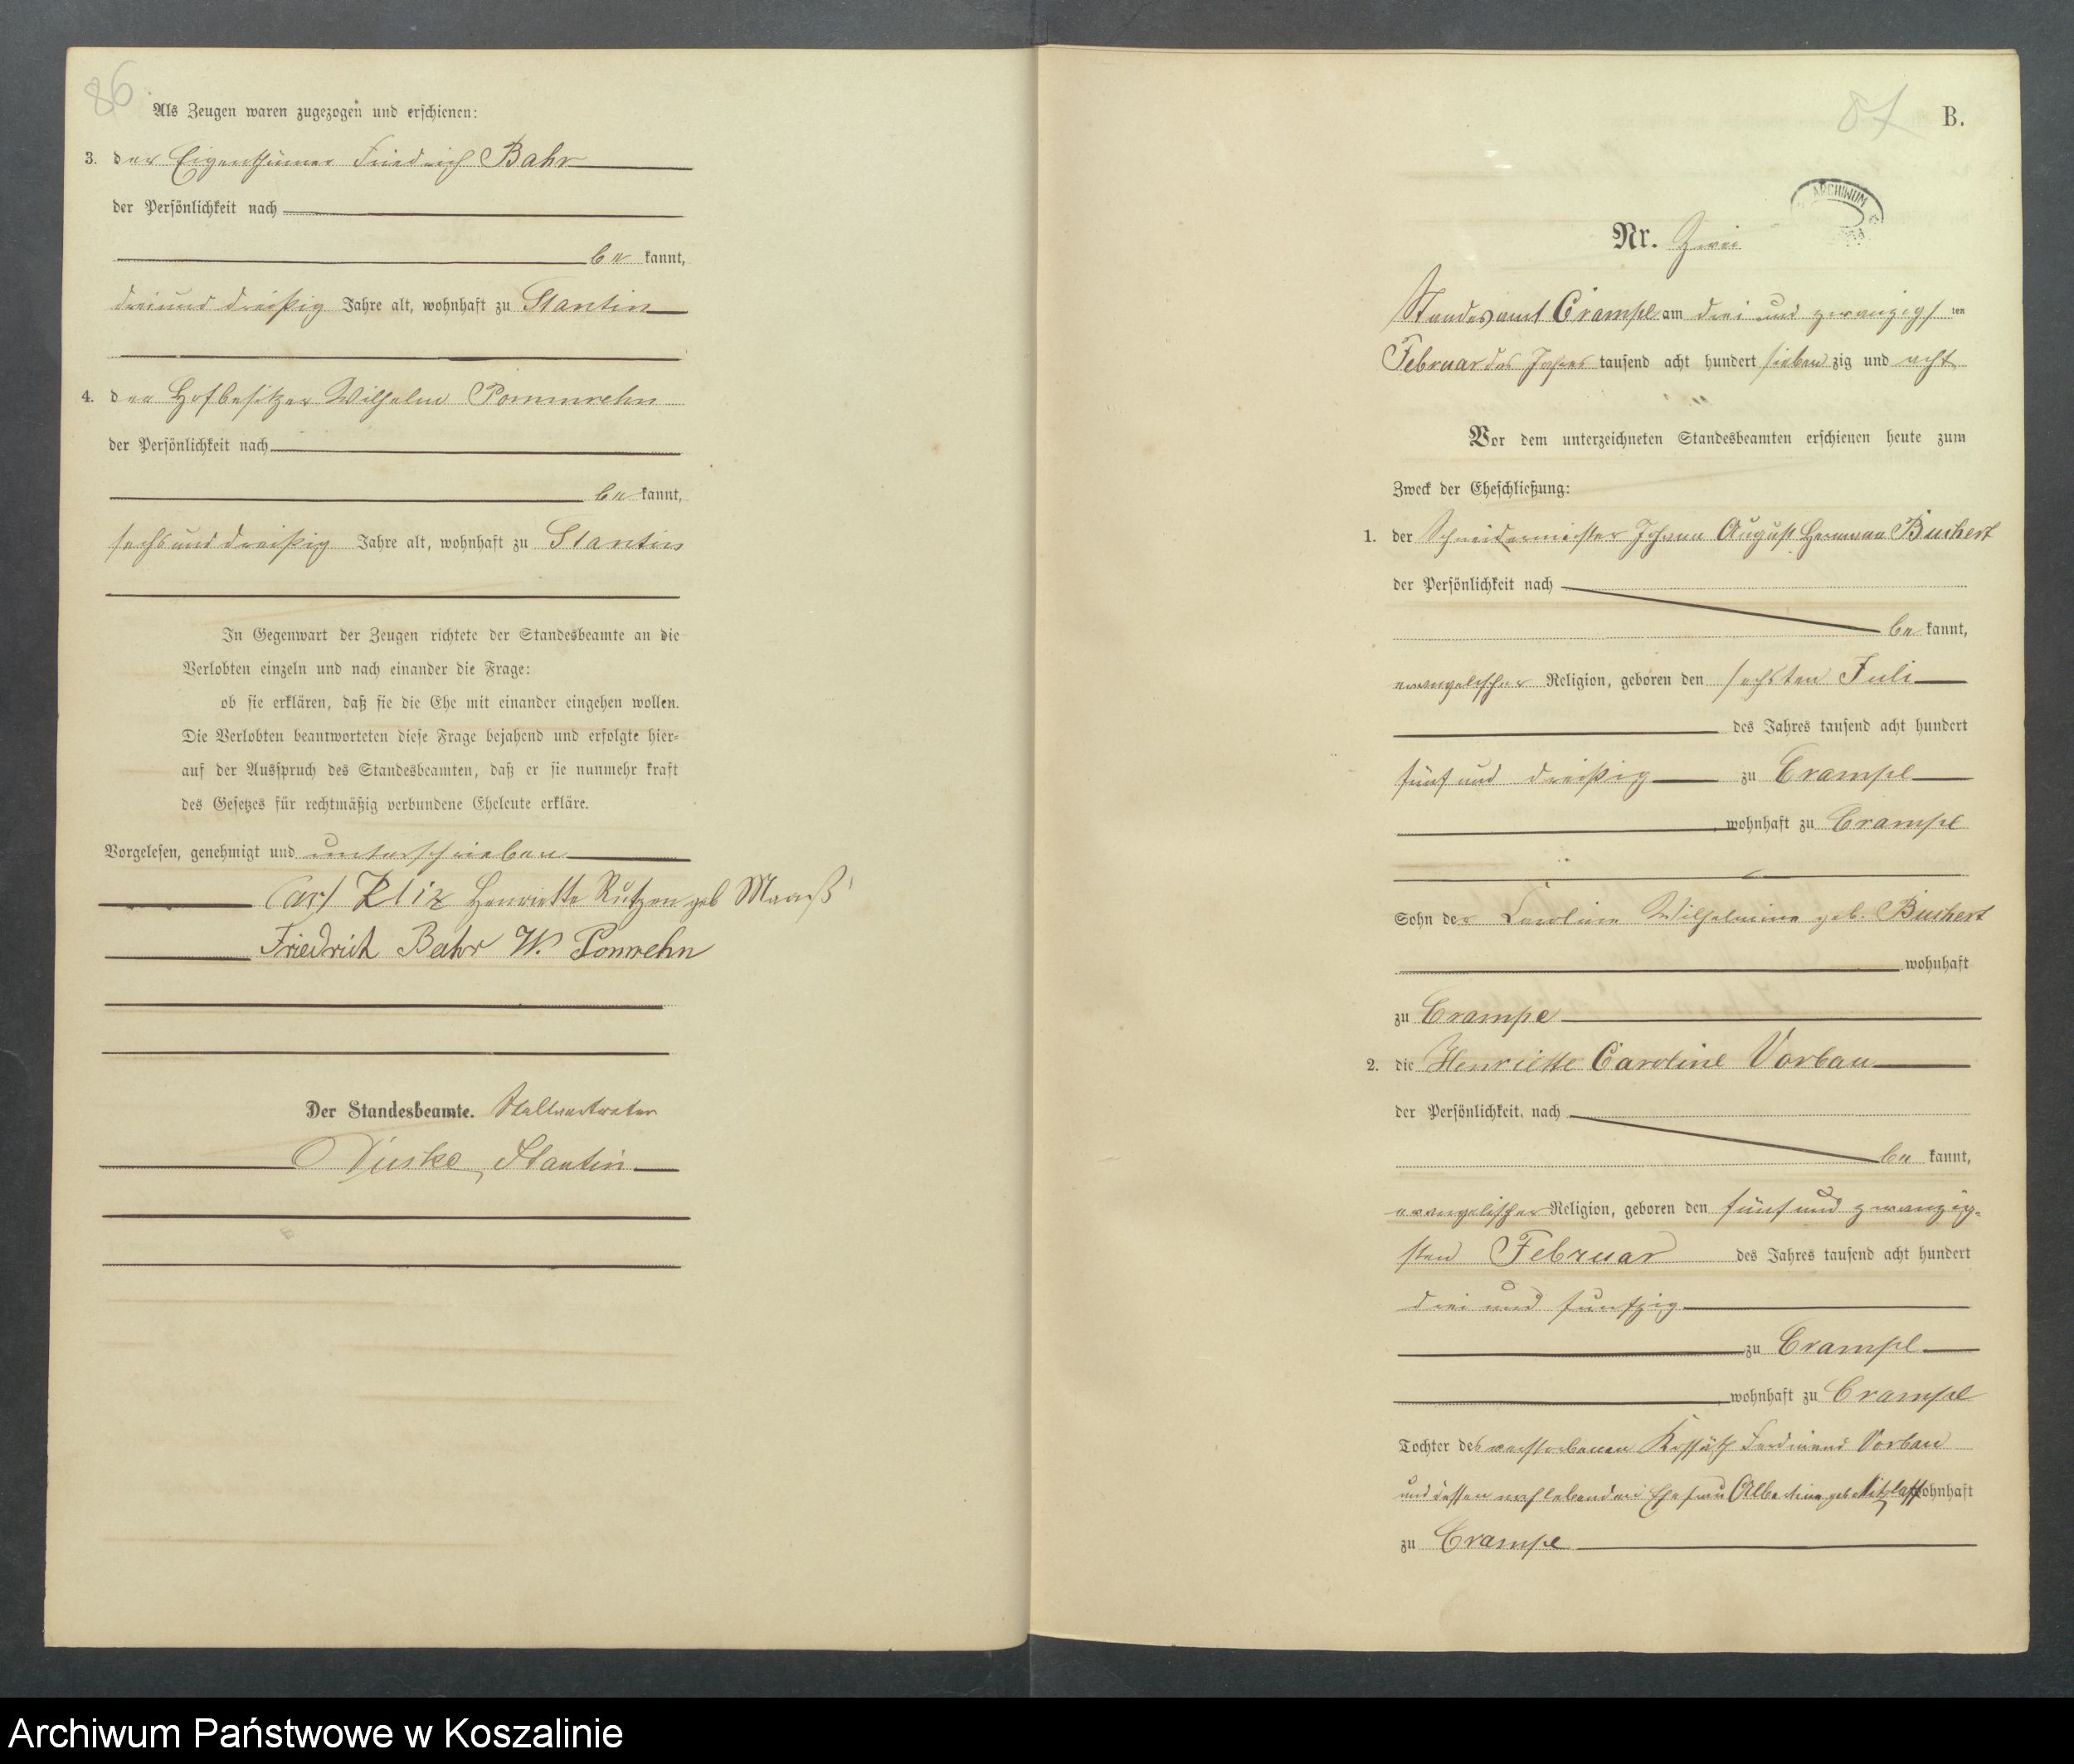 86
Als Zeugen waren zugezogen und erschienen:
3. der Eigenthümer Friedrich Bahr
der Persönlichkeit nach
be kannt,
dreiund dreißig Jahre alt, wohnhaft zu Stantin
4. der Hofbesitzer Wilhelm Pommrehn
der Persönlichkeit nach
be kannt,
sechsunddreißig Jahre alt, wohnhaft zu Stantin
In Gegenwart der Zeugen richtete der Standesbeamte an die
Verlobten einzeln und nach einander die Frage:
ob sie erklären, daß sie die Ehe mit einander eingehen wollen.
Die Verlobten beantworteten diese Frage bejahend und erfolgte hier-
auf der Ausspruch des Standesbeamten, daß er sie nunmehr kraft
des Gesetzes für rechtmäßig verbundene Eheleute erkläre.
Vorgelesen, genehmigt und unterschrieben
Carl Henriette Rutzen geb Maaß
Friedrich Bahr W. Pomrehn
Der Standesbeamte. Stellvertreter
Stantin
87 B.
ARCHIWUM
Nr. Zwei
Standesamt Crampe am drei und zwanzigsten
Februar des Jahres tausend acht hundert siebenzig und acht
Vor dem unterzeichneten Standesbeamten erschienen heute zum
Zweck der Eheschließung:
1. der Schneidermeister Johann August Hermann Buchert
der Persönlichkeit nach
be kannt,
evangelischer Religion, geboren den sechsten Juli
des Jahres tausend acht hundert
fünf und dreißig zu Crampe
wohnhaft zu Crampe
Sohn der Caroline Wilhelmine geb. Buchert
wohnhaft
zu Crampe
2. die Henriette Caroline Vorbau
der Persönlichkeit nach
be kannt,
evangelischer Religion, geboren den fünf und zwanzig-
sten Februar des Jahres tausend acht hundert
drei und funfzig
zu Crampe
wohnhaft zu Crampe
Tochter des verstorbenen Kossäth Ferdinand Vorbau
und dessen noch lebenden Ehefrau Albertine geb. Nitzlaff wohnhaft
zu Crampe
Archiwum Państwowe w Koszalinie